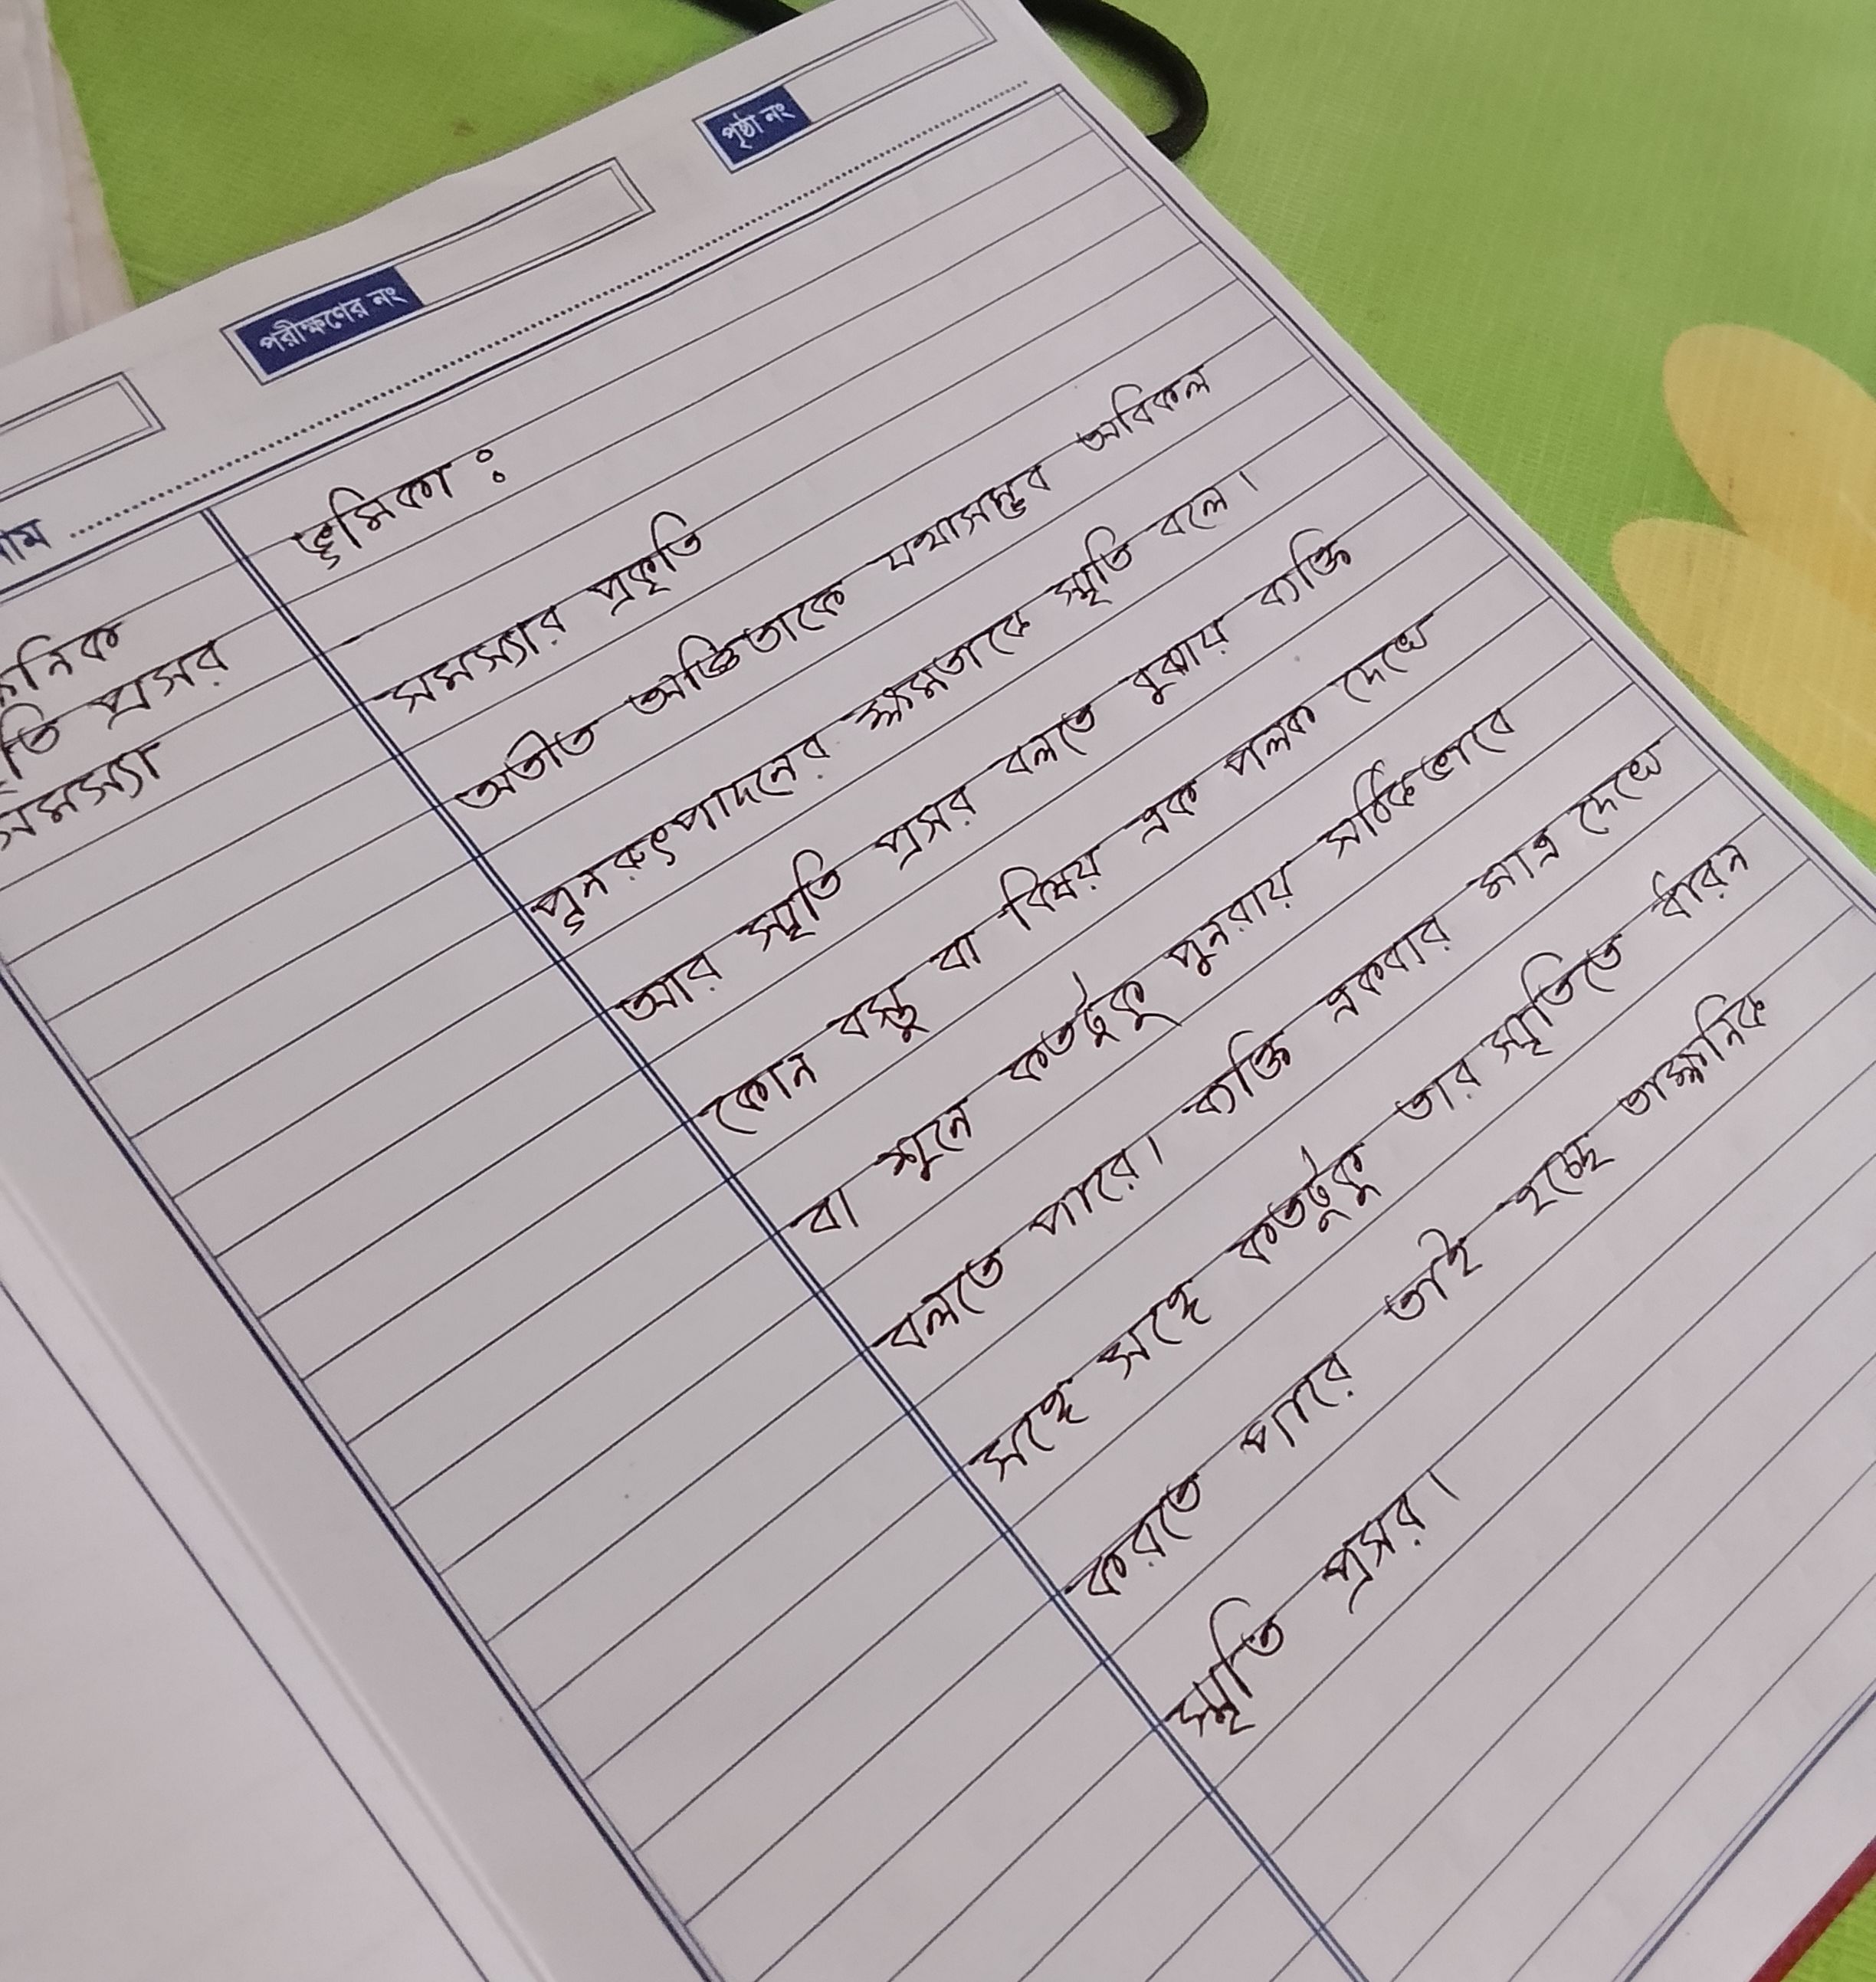 পৃষ্ঠা নং
পরীক্ষণের নং
ভূমিকা :
সমস্যার প্রকৃতি
প্রসর
সমস্যা
অতীত অভিজ্ঞতাকে যথাসম্ভব অবিকল
পুনরুৎপাদনের ক্ষমতাকে স্মৃতি বলে।
আর স্মৃতি প্রসর বলতে বুঝায় ব্যক্তি
কোন বস্তু বা বিষয় এক পলক দেখে
বা শুনে কতটুকু পুনরায় সঠিকভাবে
বলতে পারে। ব্যক্তি একবার মাত্র দেখে
সঙ্গে সঙ্গে কতটুকু তার স্মৃতিতে ধারন
করতে পারে তাই হচ্ছে তাক্ষনিক
স্মৃতি প্রসর।